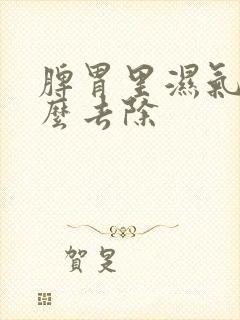 脾胃里濕氣
麽去除
賀是